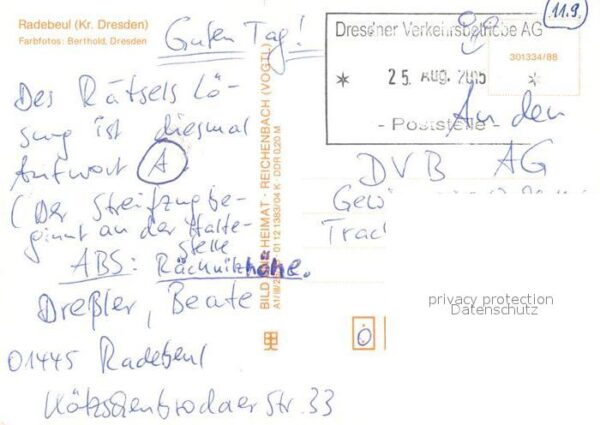 Radebeul (Kr. Dresden)
Farbfotos: Berthold, Dresden
11.9.
Guten Tag!
Dresdner Verkehrsbetriebe AG
25. AUG. 2005
- Poststelle -
301334/88
Des Rätsels Lö-
sung ist diesmal
Antwort A
(Der Streifzug be-
ginnt an der Halte-
stelle
ABS: Räcknitzhöhe.
Dreßler, Beate
01445 Radebeul
Kötzschenbrodaer Str. 33
BILD HEIMAT · REICHENBACH (VOGTL)
01 12 1383/04 K DDR 0,20 M
An den
DVB AG
Trac
Ö
privacy protection
Datenschutz